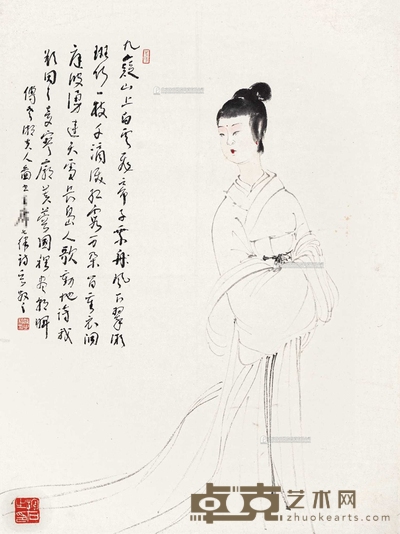 九嶷山上白雲飛帝子乘風下翠微
斑竹一枝千滴淚紅霞萬朵百重衣洞
庭波湧連天雪長島人歌動地詩我
欲因之夢寥廓芙蓉國裡盡朝暉
湘夫人圖
抱石之印
卓克艺术网
zhuokearts.com